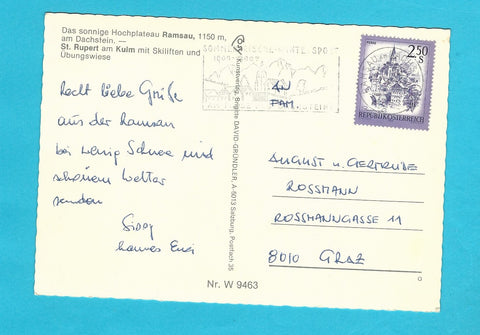 Das sonnige Hochplateau Ramsau, 1150 m,
am Dachstein, —
St. Rupert am Kulm mit Skiliften und
Übungswiese
Recht liebe Grüße
aus der Ramsau
bei wenig Schnee und
schönem Wetter
senden
Sissy
Hannes
Kunstverlag, Brigitte DAVID-GRÜNDLER, A-5013 Salzburg, Postfach 35
Nr. W 9463
SONNE
SPORT
2.50
S
REPUBLIK ÖSTERREICH
AN
FAM
AUGUST u. GERTRUDE
ROSSMANN
ROSSMANNGASSE 11
8010 GRAZ